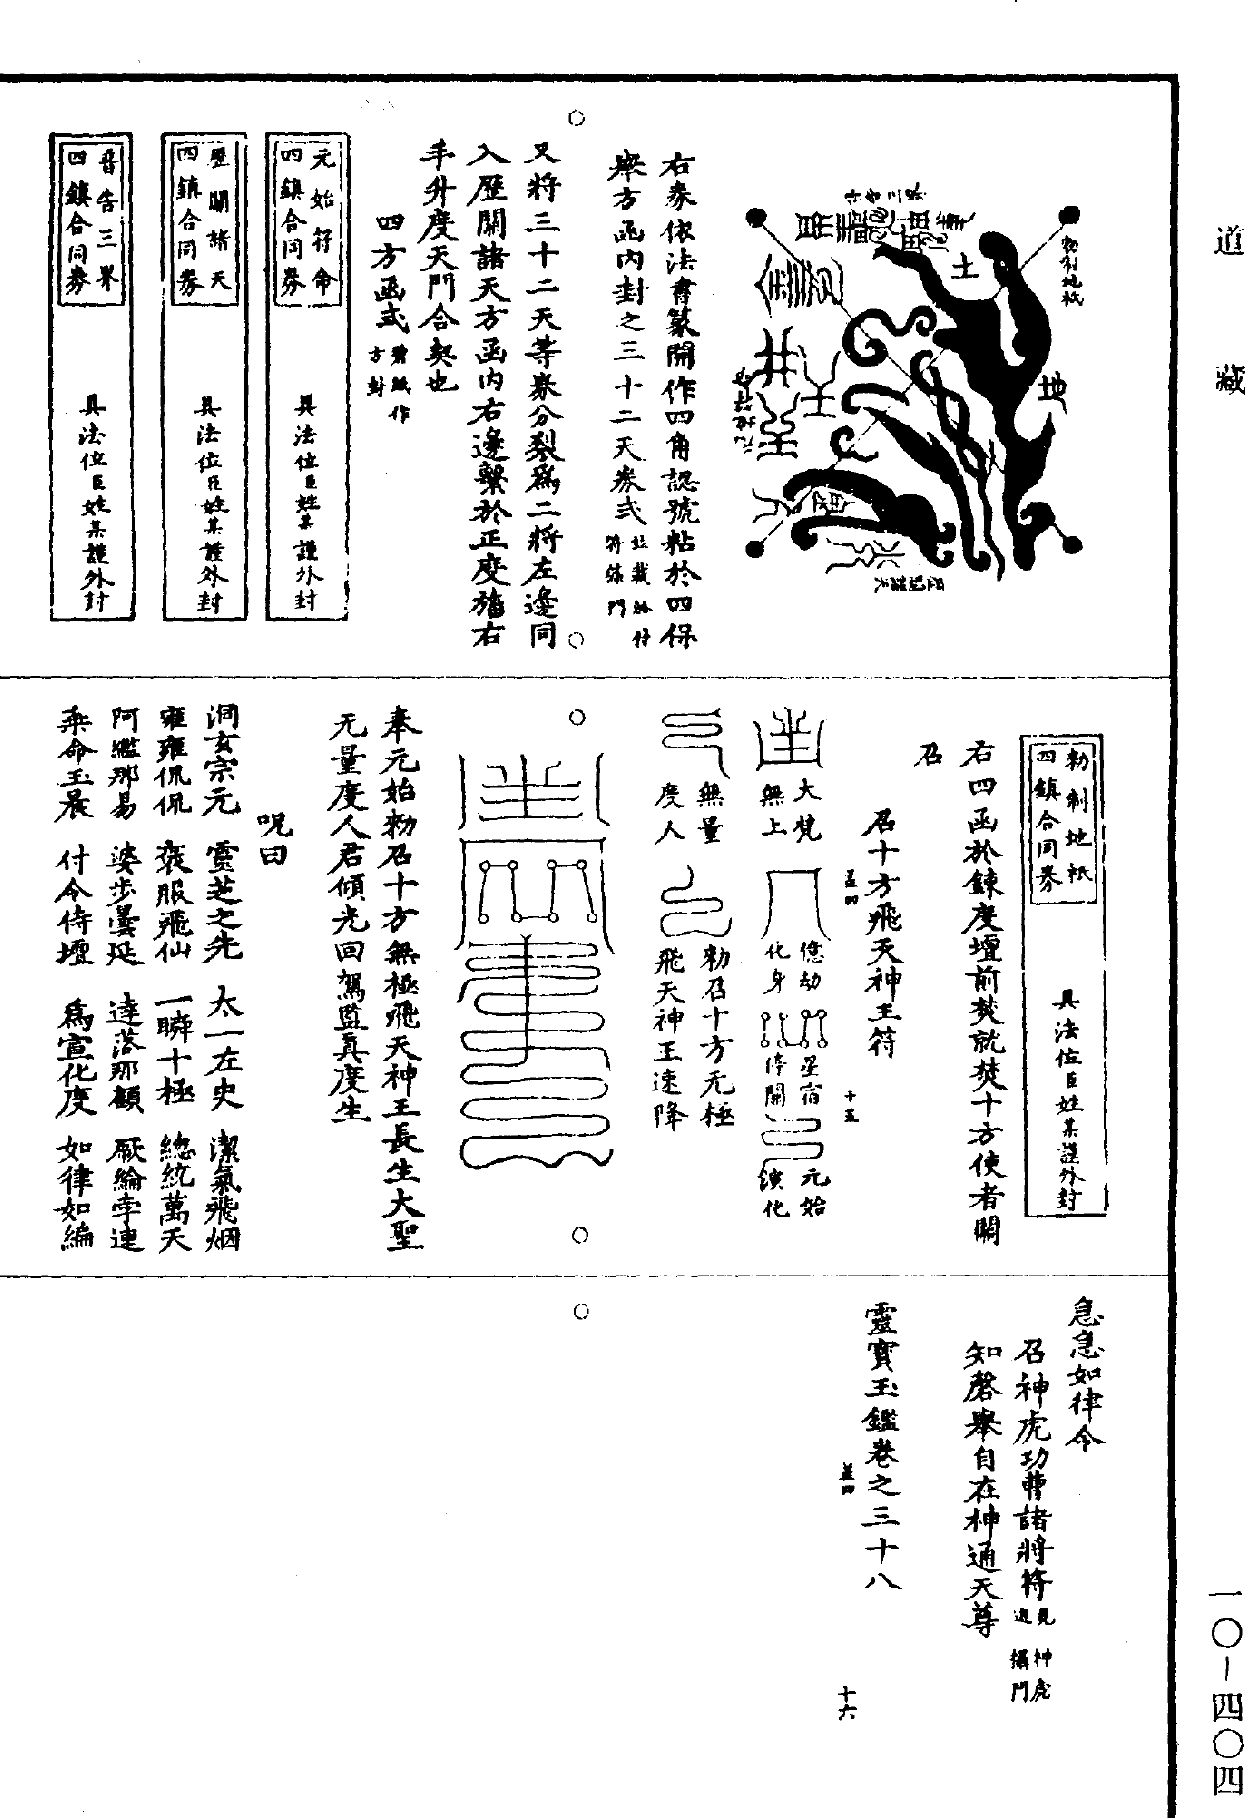 道藏
土
地
勑制地祇
右券依法書篆開作四角認號粘於四保
舉方函內封之三十二天券式
又將三十二天等券分裂爲二將左邊同
入歷關諸天方函內右邊繫於正度旛右
手升度天門合契也
四方函式
元始符命
四鎮合同券
具法位臣姓某謹外封
歷關諸天
四鎮合同券
具法位臣姓某謹外封
普告三界
四鎮合同券
具法位臣姓某謹外封
勑制地祇
四鎮合同券
具法位臣姓某謹外封
右四函於鍊度壇前焚就焚十方使者關
召
召十方飛天神王符
孟四
十五
大梵
無上
億劫
化身
星宿
停關
元始
演化
無量
度人
勑召十方无極
飛天神王速降
奉元始勑召十方無極飛天神王長生大聖
无量度人君傾光回駕監真度生
呪曰
洞玄宗元 靈芝之先 太一左史 潔氣飛烟
雍雍侃侃 褒服飛仙 一瞬十極 總統萬天
阿鑑那易 婆步曇延 達落那顧 厥綸孛連
乘命玉晨 付令侍壇 爲宣化度 如律如編
急急如律令
召神虎功曹諸將符見神虎
追攝門
知磬舉自在神通天尊
靈寶玉鑑卷之三十八
孟四
十六
一〇–四〇四